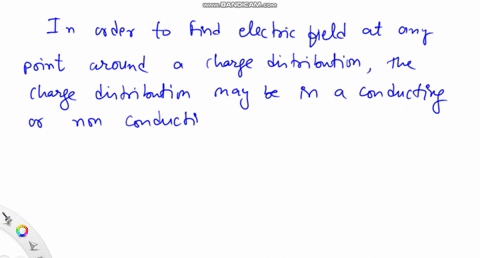 www.BANDICAM.com
In order to find electric field at any
point around a charge distribution, the
charge distribution may be in a conducting
or non conducti